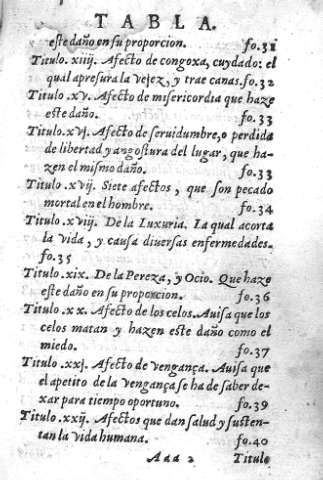 TABLA.
este daño en su proporcion. fo.31
Titulo .xiiij. Afecto de congoxa, cuydado: el
qual apresura la vejez, y trae canas. fo.32
Titulo .xv. Afecto de misericordia que haze
este daño. fo.33
Titulo.xvj. Afecto de seruidumbre, o perdida
de libertad y angostura del lugar, que ha-
zen el mismo daño. fo.33
Titulo .xvij. Siete afectos, que son pecado
mortal en el hombre. fo.34
Titulo .xviij. De la Luxuria. La qual acorta
la vida, y causa diuersas enfermedades.
fo.35
Titulo .xix. De la Pereza, y Ocio. Que haze
este daño en su proporcion. fo.36
Titulo .xx. Afecto de los celos. Auisa que los
celos matan y hazen este daño como el
miedo. fo.37
Titulo .xxj. Afecto de vengança. Auisa que
el apetito de la vengança se ha de saber de-
xar para tiempo oportuno. fo.39
Titulo .xxij. Afectos que dan salud y susten-
tan la vida humana. fo.40
Aaa 2 Titulo